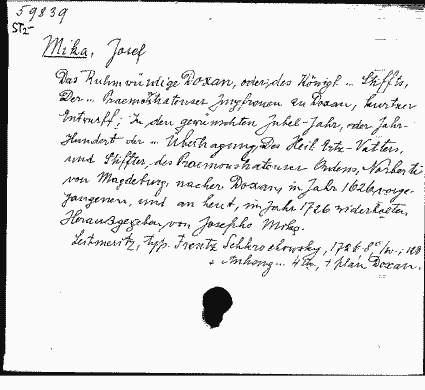 59839
ST2-
Mika, Josef
Das Ruhmwürdige Doxan, oder, des Königl ... Stiffts,
Der ... Praemonstratenser Jungfrauen zu Doxan, kurtzer
Entwurff: zu den gewünschten Jubel-Jahr, oder Jahr-
Hundert der ... Übertragung, Des Heil. Ertz-Vatters,
und Stiffter, des Praemonstratenser Ordens, Norberti
von Magdeburg, nacher Doxan, im Jahr 1626 vorge-
gangenen, und an heut, im Jahr 1726 widerholten,
Heraußgegeben von Josepho Mika.
Leitmeritz, typ. Frantz Schkrochowsky, 1726. 8°
+ Anhang ... 4 + plán Doxan.